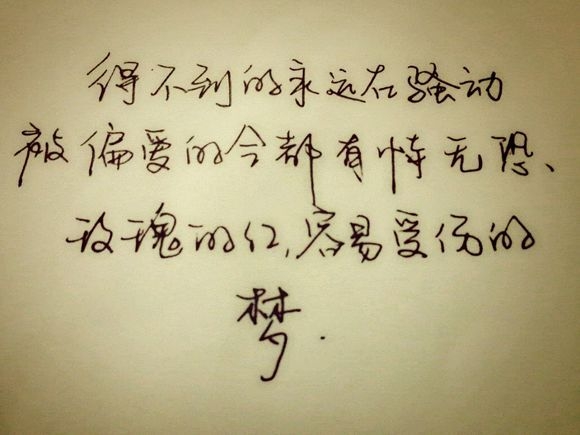 得不到的永远在骚动
被偏爱的今都有恃无恐、
玫瑰的红,容易受伤的
梦.